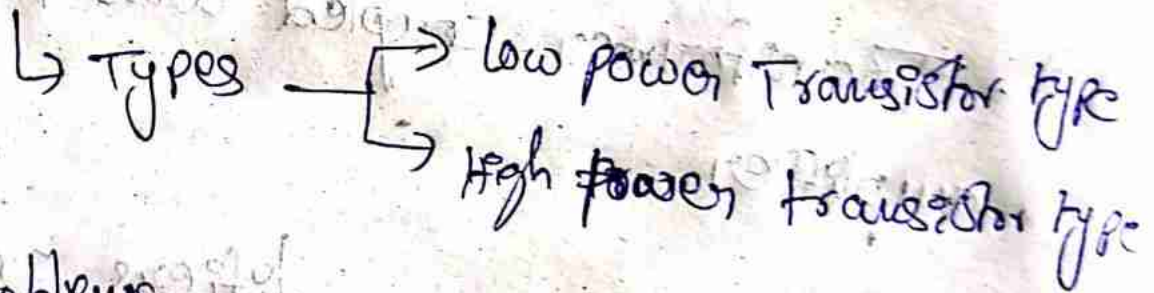 ↳ Types → Low power Transistor type
→ High power transistor type